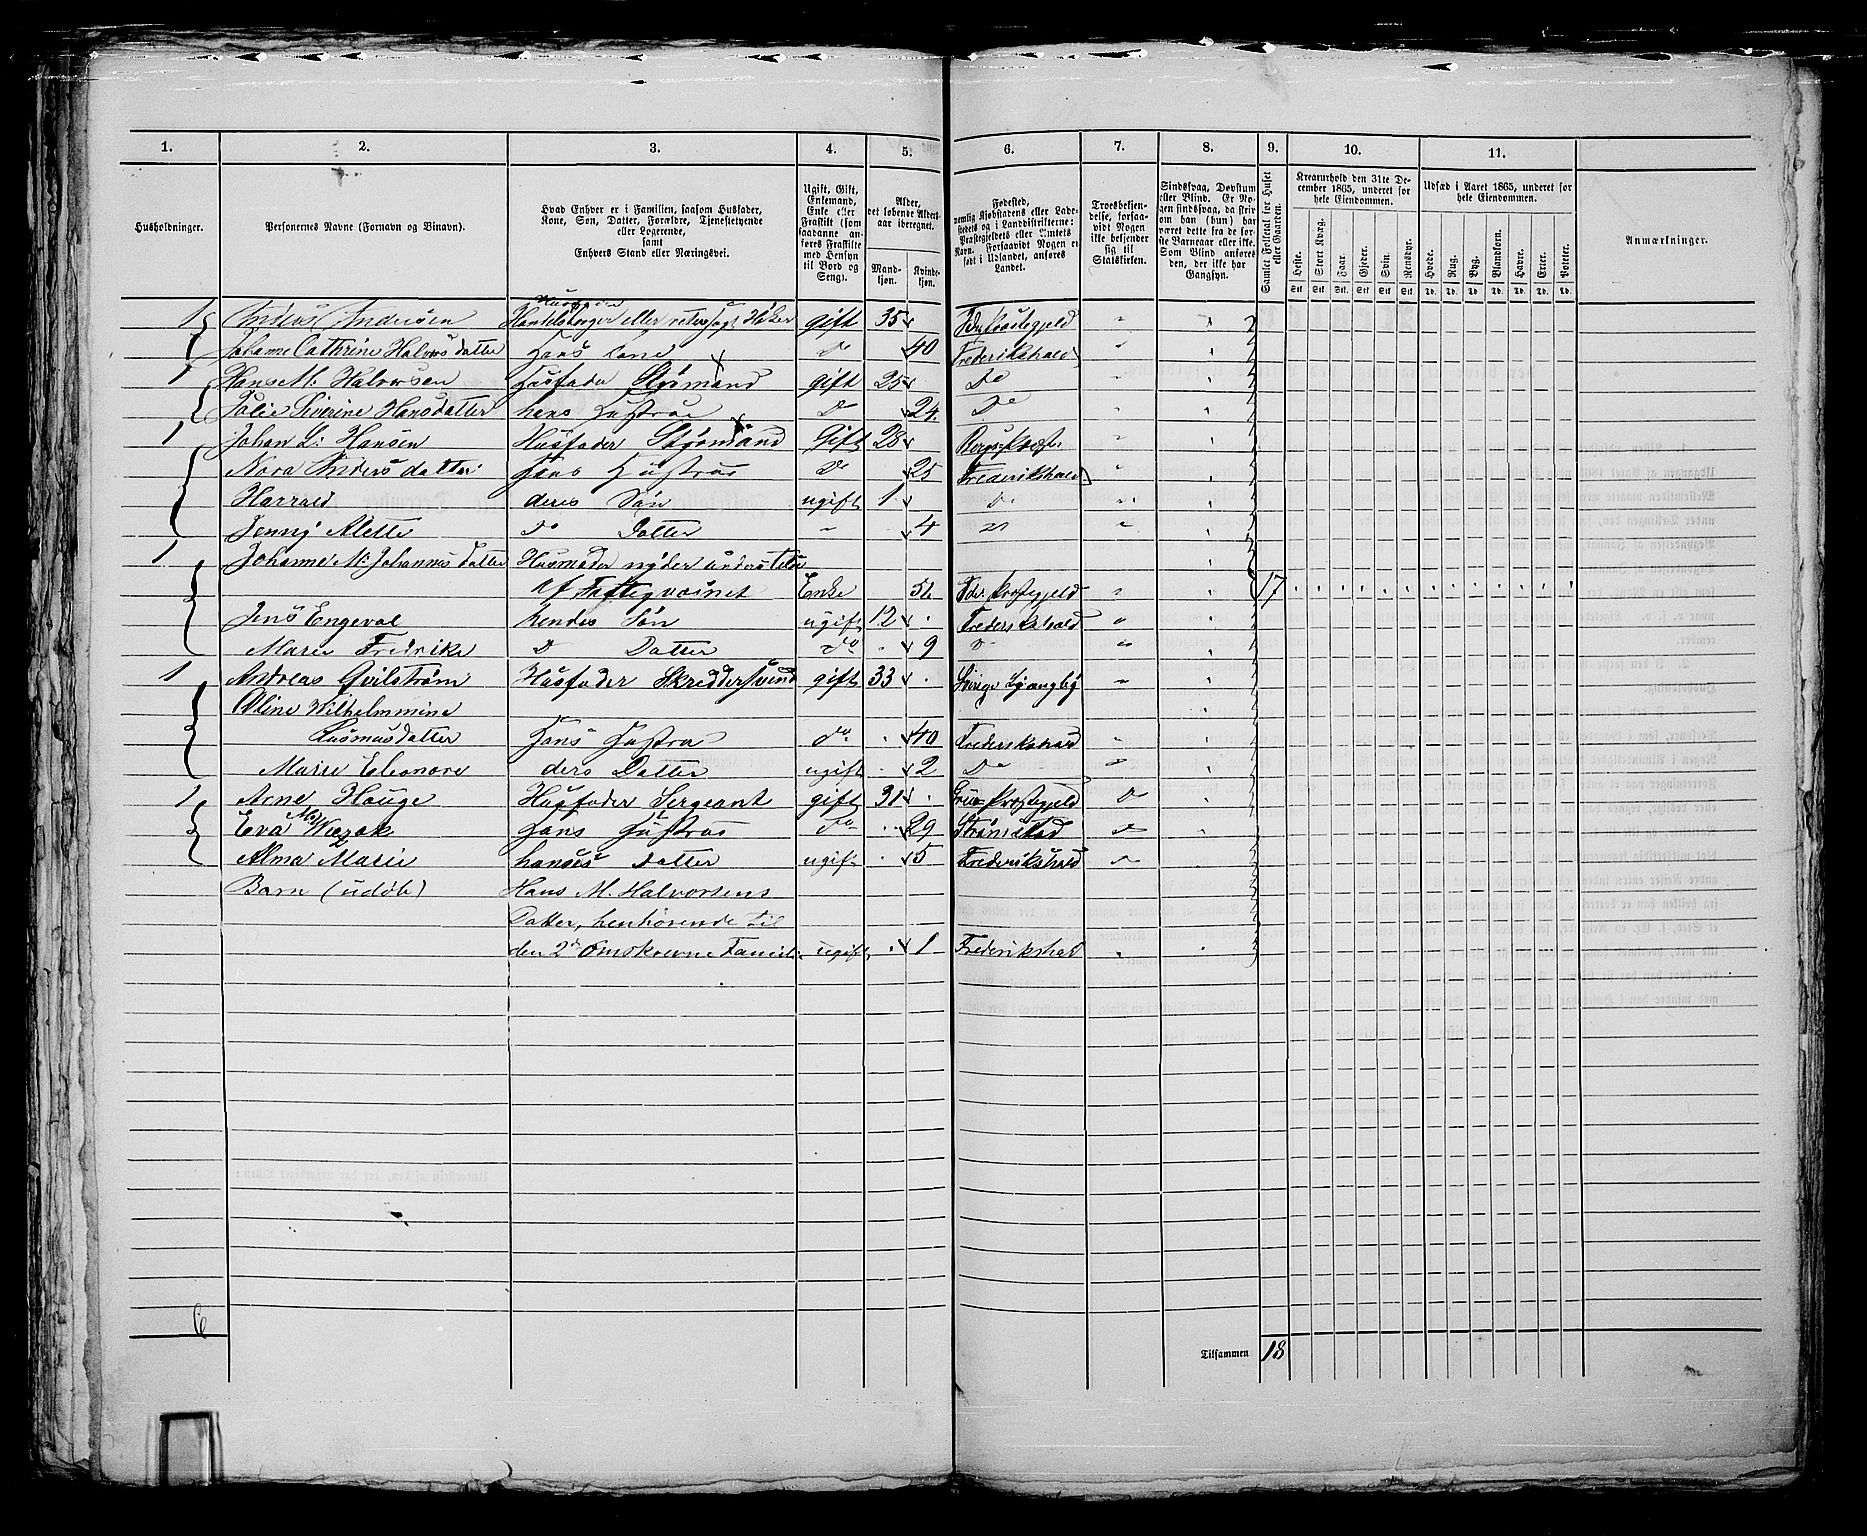 1. 2. 3. 4. 5. 6. 7. 8. 9. 10. 11.
Husholdninger.
Personernes Navne (Fornavn og Binavn).
Hvad Enhver er i Familien, saasom Husfader,
Kone, Søn, Datter, Forældre, Tjenestetyende
eller Logerende,
samt
Enhvers Stand eller Næringsvei.
Ugift, Gift,
Enkemand,
Enke eller
Fraskilt (som
saadanne an-
føres Fraskilte
med Hensyn
til Bord og
Seng).
Alder,
det løbende Alders-
aar iberegnet.
Mand-
kjøn.
Kvinde-
kjøn.
Fødested,
nemlig Kjøbstadens eller Lade-
stedets og i Landdistrikterne:
Præstegjeldets eller Amtets
Navn. Forsaavidt Nogen er
født i Udlandet, anføres
Landet.
Troesbekjen-
delse, forsaa-
vidt Nogen
ikke bekjender
sig til
Statskirken.
Sindssvag, Døvstum
eller Blind. Er No-
gen sindssvag, da skriv
om han (hun) har
været dette fra de før-
ste Barneaar eller ikke.
Som Blind anføres
den, der ikke har
Gangsyn.
Samlet Folketal for Huset
eller Gaarden.
Kreaturhold den 31te De-
cember 1865, underet for
hele Eiendommen.
Heste. Stort Kvæg. Faar. Gjeder. Svin. Rensdyr.
Stk. Stk. Stk. Stk. Stk. Stk.
Udsæd i Aaret 1865, underet for
hele Eiendommen.
Hvede. Rug. Byg. Blandkorn. Havre. Erter. Poteter.
Td. Td. Td. Td. Td. Td. Td.
Anmærkninger.
Husfader
1 Anders Andersen Handelsborger eller retersagt Høker gift 35 Idde Præstegjeld
Johanne Cathrine Halvorsdatter Hans Kone Do 40 Frederikshald
1 Hans M: Halvorsen Husfader Styrmand gift 25 Do
Julie Siverine Hansdatter hans Hustrue Do 24. Do
1 Johan L: Hansen Husfader Styrmand Gift 28
Nora Andersdatter Hans Hustrue Do 25 Frederikshald
Harrald deres Søn ugift 1 Do
Jenny Alette Do Datter 4
1. Johanne M: Johannesdatter Husmoder nyder understøttelse
af Fattigvæsnet Enke Idde Præstegjeld 17
Jens Engeval hendes Søn ugift 12 Frederikshald
Marie Fredrike D Datter Do 9 D
1 Andreas Qvilstrøm Husfader Skreddersvend gift 33 Sverige
Oline Wilhelmmine
Rasmusdatter Hans Hustru do 40 Frederikshald
Marie Eleonore ders Datter ugift 2 Do
1 Arne Hauge Husfader Sergeant gift 31 Grue Præstegjeld
Eva Hans Hustrue Do 29 Strømstad
Alma Marie Datter ugift 5 Frederikshald
Barn (udøb) Hans M. Halvorsens
Datter, henhørende til
den 2den Omskrevne Famili ugift 1 Frederikshald
6
Tilsammen 18